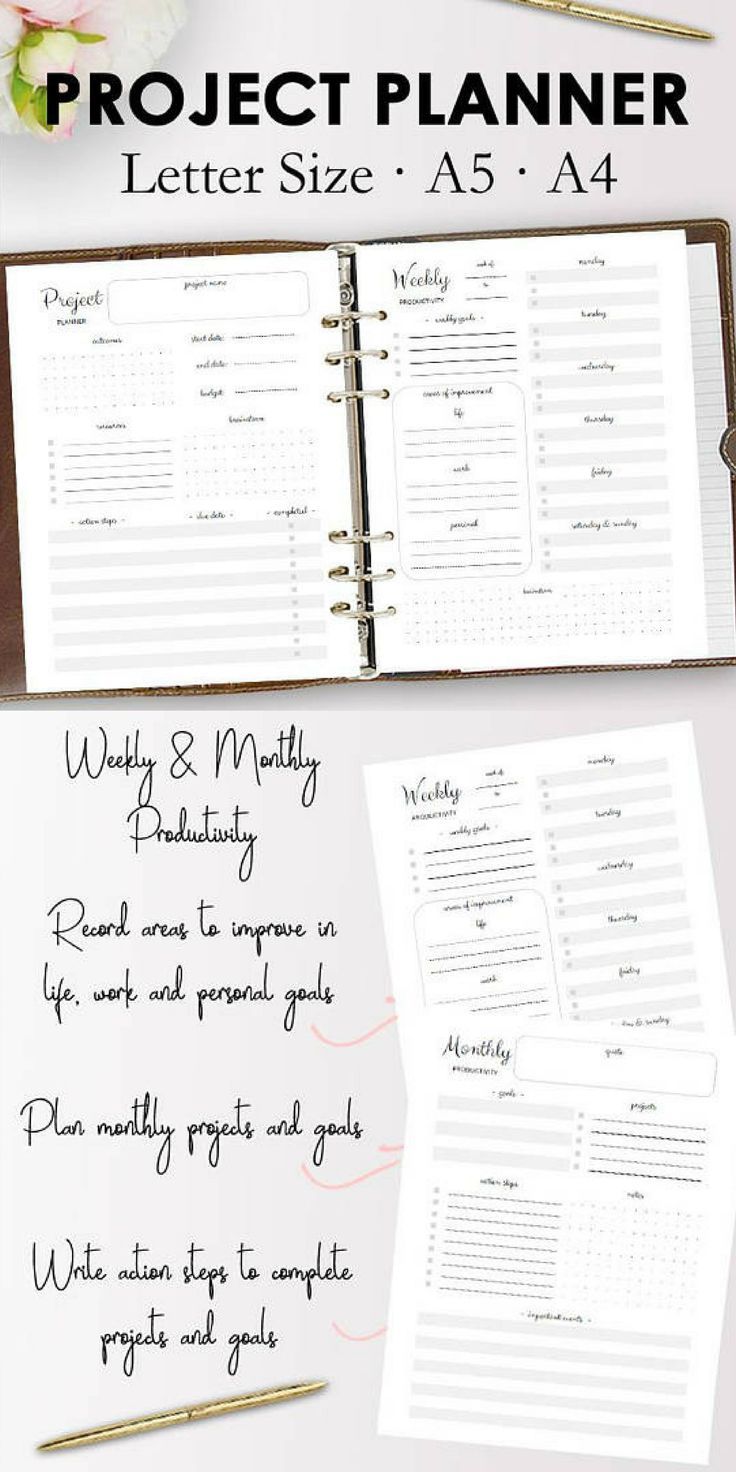 PROJECT PLANNER
Letter Size · A5 · A4
Project
PLANNER
project name
outcomes
start date:
end date:
budget:
resources
brainstorm
- action steps -
- due date -
- completed -
Weekly
PRODUCTIVITY
week of:
to
- weekly goals -
areas of improvement
life
work
personal
monday
tuesday
wednesday
thursday
friday
saturday & sunday
brainstorm
Weekly & Monthly
Productivity
Record areas to improve in
life, work and personal goals
Plan monthly projects and goals
Write action steps to complete
projects and goals
Weekly
PRODUCTIVITY
week of:
to
- weekly goals -
areas of improvement
life
work
monday
tuesday
wednesday
thursday
friday
& sunday
Monthly
PRODUCTIVITY
quote
- goals -
projects
action steps
notes
- important events -